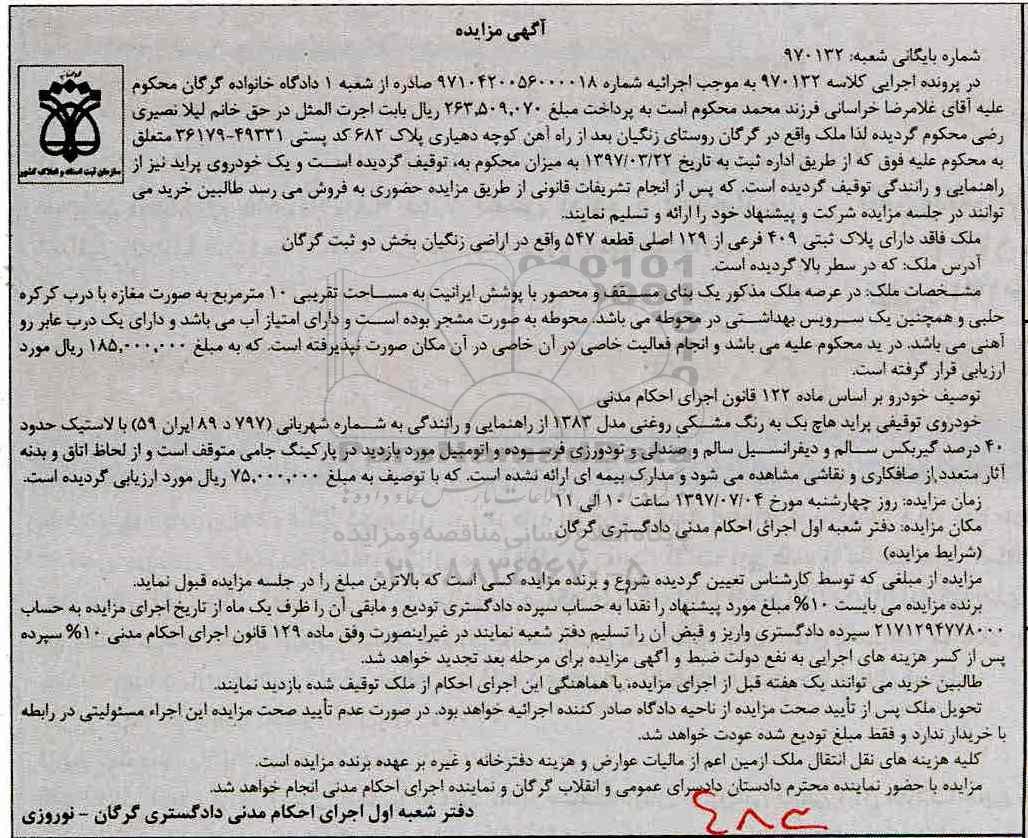 آگهی مزایده
شماره بایگانی شعبه: ۹۷۰۱۳۲
در پرونده اجرایی کلاسه ۹۷۰۱۳۲ به موجب اجرائیه شماره ۹۷۱۰۴۲۰۰۵۶۰۰۰۰۱۸ صادره از شعبه ۱ دادگاه خانواده گرگان محکوم
علیه آقای غلامرضا خراسانی فرزند محمد محکوم است به پرداخت مبلغ ۲۶۳,۵۰۹,۰۷۰ ریال بابت اجرت المثل در حق خانم لیلا نصیری
رضی محکوم گردیده لذا ملک واقع در گرگان روستای زنگیان بعد از راه آهن کوچه دهیاری پلاک ۶۸۲ کد پستی ۴۹۳۳۱-۳۶۱۷۹ متعلق
به محکوم علیه فوق که از طریق اداره ثبت به تاریخ ۱۳۹۷/۰۳/۲۲ به میزان محکوم به، توقیف گردیده است و یک خودروی پراید نیز از
راهنمایی و رانندگی توقیف گردیده است. که پس از انجام تشریفات قانونی از طریق مزایده حضوری به فروش می رسد طالبین خرید می
توانند در جلسه مزایده شرکت و پیشنهاد خود را ارائه و تسلیم نمایند.
سازمان ثبت اسناد و املاک کشور
ملک فاقد دارای پلاک ثبتی ۴۰۹ فرعی از ۱۲۹ اصلی قطعه ۵۴۷ واقع در اراضی زنگیان بخش دو ثبت گرگان
آدرس ملک: که در سطر بالا گردیده است.
مشخصات ملک: در عرصه ملک مذکور یک بنای مسقف و محصور با پوشش ایرانیت به مساحت تقریبی ۱۰ مترمربع به صورت مغازه با درب کرکره
حلبی و همچنین یک سرویس بهداشتی در محوطه می باشد. محوطه به صورت مشجر بوده است و دارای امتیاز آب می باشد و دارای یک درب عابر رو
آهنی می باشد. در ید محکوم علیه می باشد و انجام فعالیت خاصی در آن خاصی در آن مکان صورت نپذیرفته است. که به مبلغ ۱۸۵,۰۰۰,۰۰۰ ریال مورد
ارزیابی قرار گرفته است.
توصیف خودرو بر اساس ماده ۱۲۲ قانون اجرای احکام مدنی
خودروی توقیفی پراید هاچ بک به رنگ مشکی روغنی مدل ۱۳۸۳ از راهنمایی و رانندگی به شماره شهربانی (۷۹۷ د ۸۹ ایران ۵۹) با لاستیک حدود
۴۰ درصد گیربکس سالم و دیفرانسیل سالم و صندلی و تودورزی فرسوده و اتومبیل مورد بازدید در پارکینگ جامی متوقف است و از لحاظ اتاق و بدنه
آثار متعدد از صافکاری و نقاشی مشاهده می شود و مدارک بیمه ای ارائه نشده است. که با توصیف به مبلغ ۷۵,۰۰۰,۰۰۰ ریال مورد ارزیابی گردیده است.
زمان مزایده: روز چهارشنبه مورخ ۱۳۹۷/۰۷/۰۴ ساعت ۱۰ الی ۱۱
مکان مزایده: دفتر شعبه اول اجرای احکام مدنی دادگستری گرگان
(شرایط مزایده)
مزایده از مبلغی که توسط کارشناس تعیین گردیده شروع و برنده مزایده کسی است که بالاترین مبلغ را در جلسه مزایده قبول نماید.
برنده مزایده می بایست ۱۰% مبلغ مورد پیشنهاد را نقداً به حساب سپرده دادگستری تودیع و مابقی آن را ظرف یک ماه از تاریخ اجرای مزایده به حساب
۲۱۷۱۲۹۴۷۷۸۰۰۰ سپرده دادگستری واریز و قبض آن را تسلیم دفتر شعبه نمایند در غیراینصورت وفق ماده ۱۲۹ قانون اجرای احکام مدنی ۱۰% سپرده
پس از کسر هزینه های اجرایی به نفع دولت ضبط و آگهی مزایده برای مرحله بعد تجدید خواهد شد.
طالبین خرید می توانند یک هفته قبل از اجرای مزایده، با هماهنگی این اجرای احکام از ملک توقیف شده بازدید نمایند.
تحویل ملک پس از تأیید صحت مزایده از ناحیه دادگاه صادر کننده اجرائیه خواهد بود. در صورت عدم تأیید صحت مزایده این اجراء مسئولیتی در رابطه
با خریدار ندارد و فقط مبلغ تودیع شده عودت خواهد شد.
کلیه هزینه های نقل انتقال ملک ازمین اعم از مالیات عوارض و هزینه دفترخانه و غیره بر عهده برنده مزایده است.
مزایده با حضور نماینده محترم دادستان دادسرای عمومی و انقلاب گرگان و نماینده اجرای احکام مدنی انجام خواهد شد.
دفتر شعبه اول اجرای احکام مدنی دادگستری گرگان - نوروزی